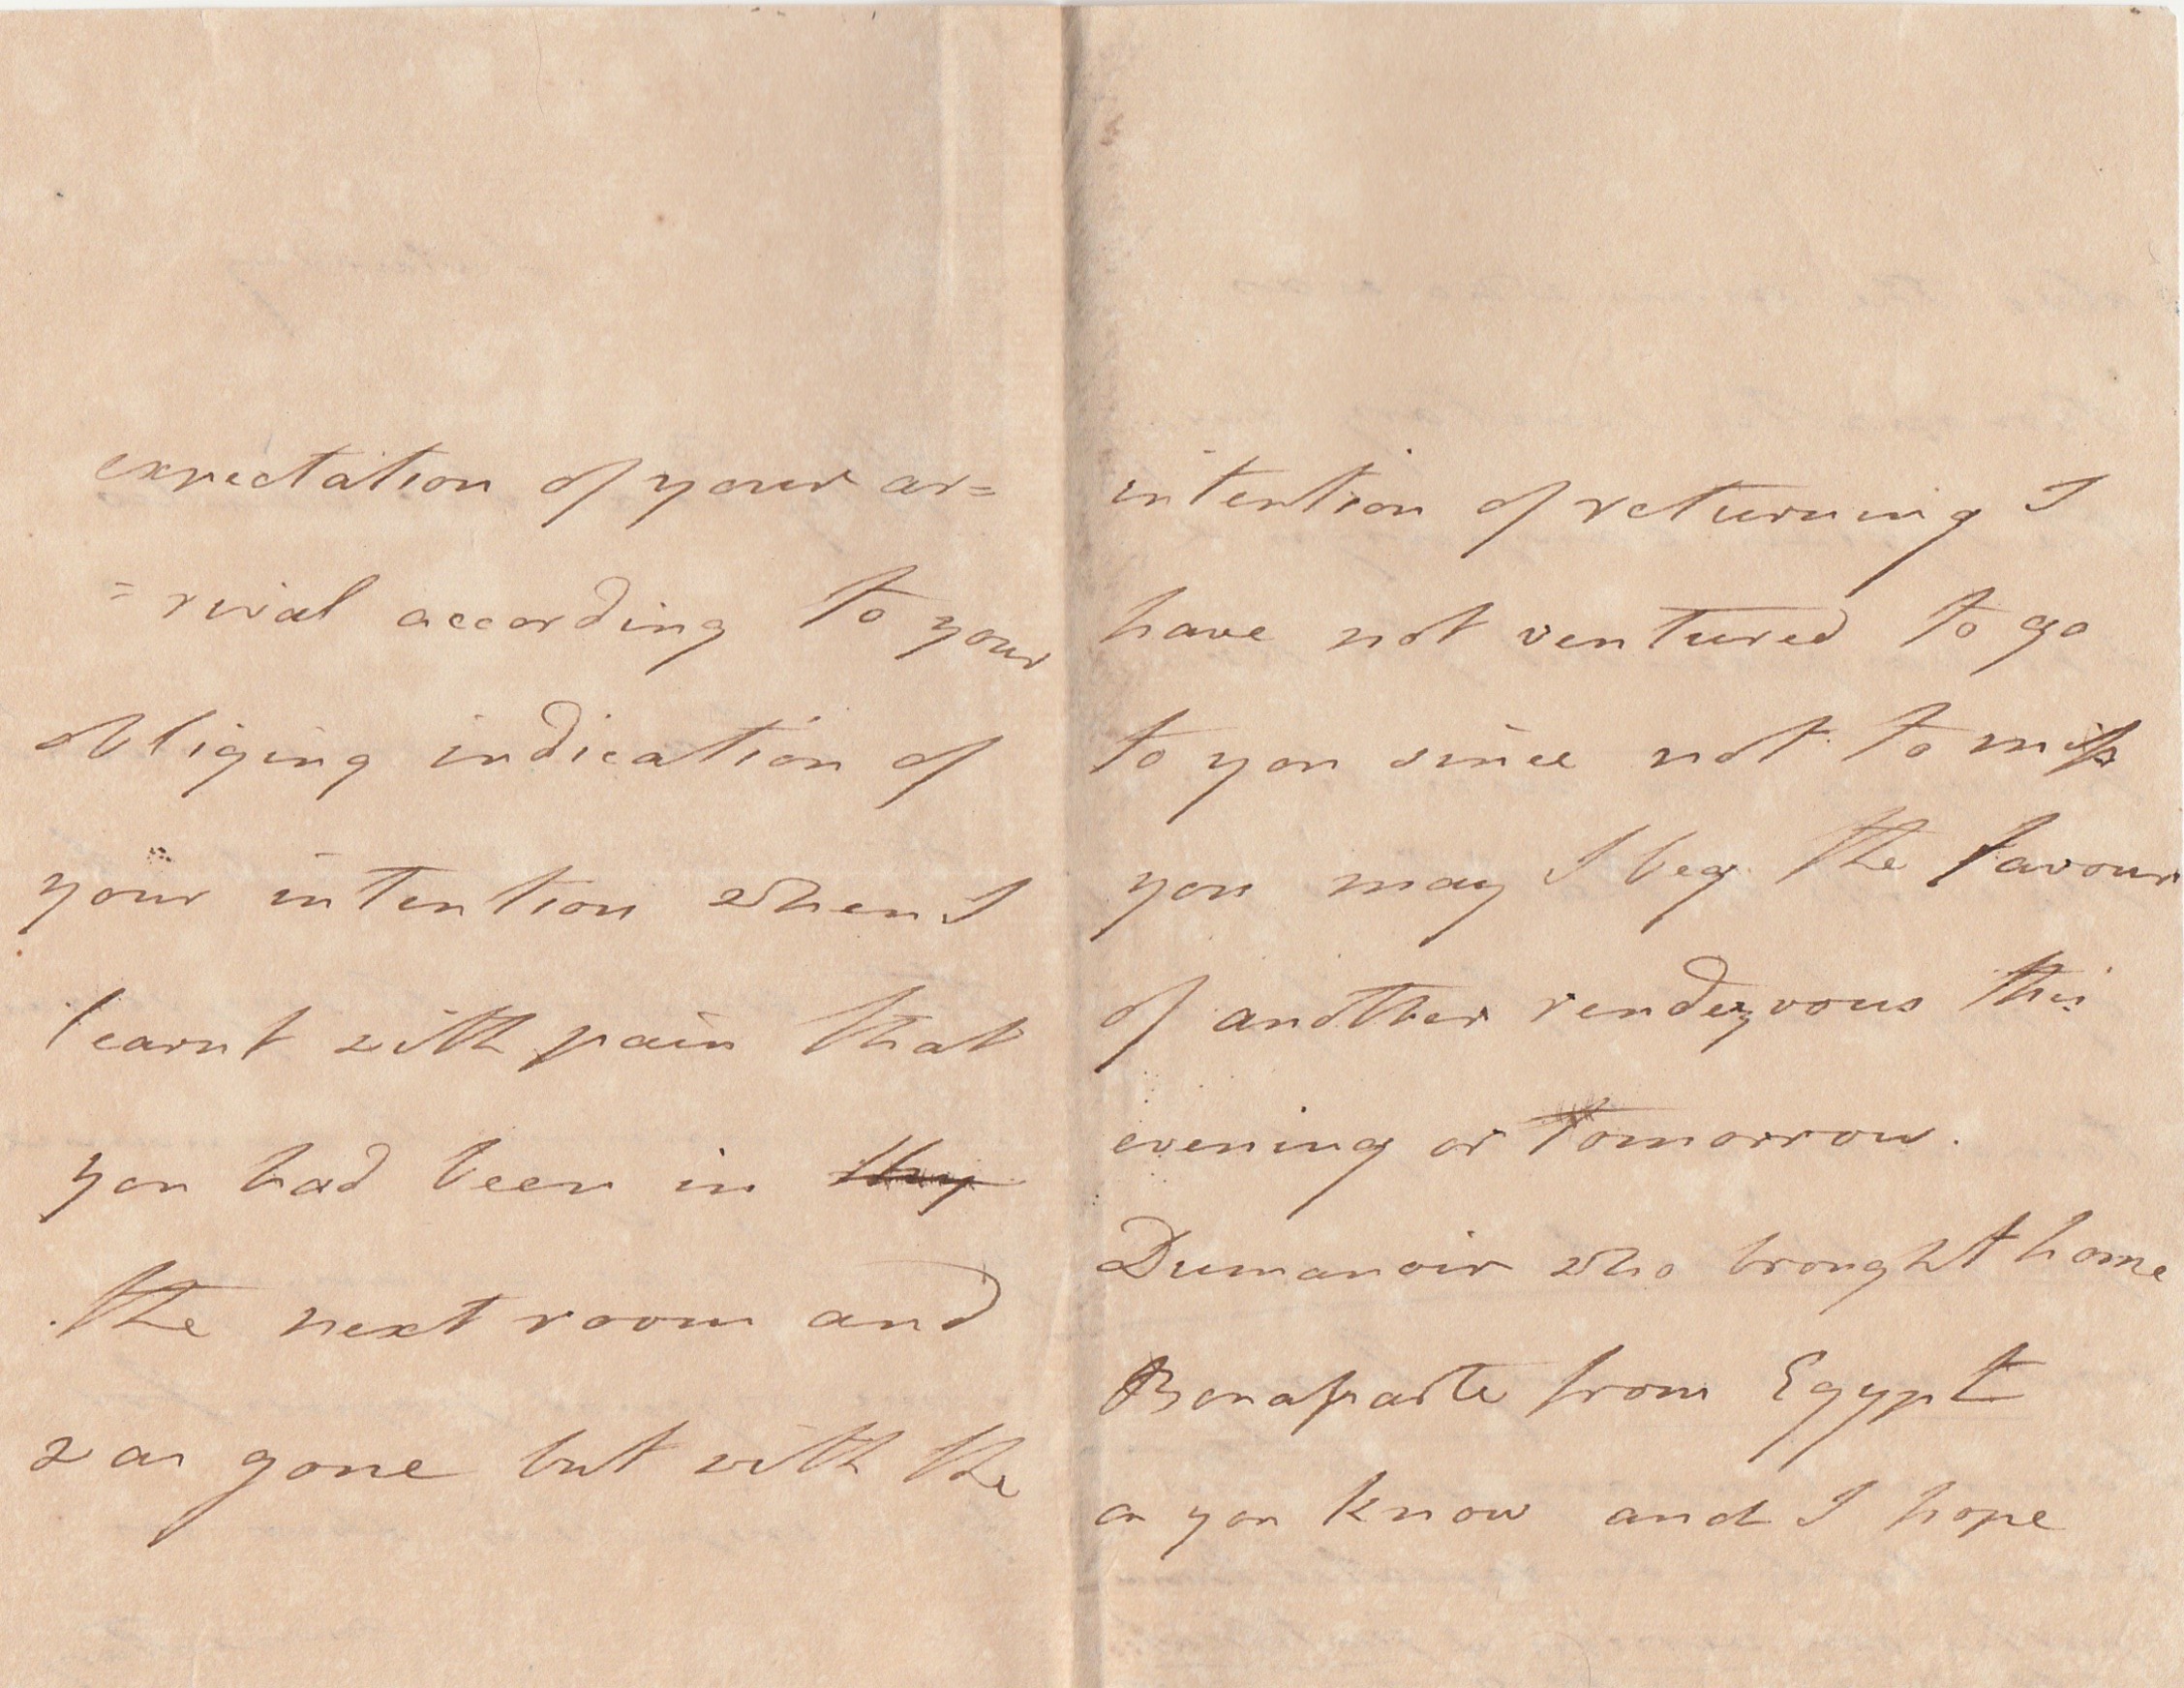 expectation of your ar=
=rival according to your
obliging indication of
your intention when I
learnt with pain that
you had been in they
the next room and
was gone but with the
intention of returning I
have not ventured to go
to you since not to miss
you may I beg the favour
of another rendezvous this
evening or tomorrow.
Dumanoir who brought home
Bonaparte from Egypt
as you know and I hope